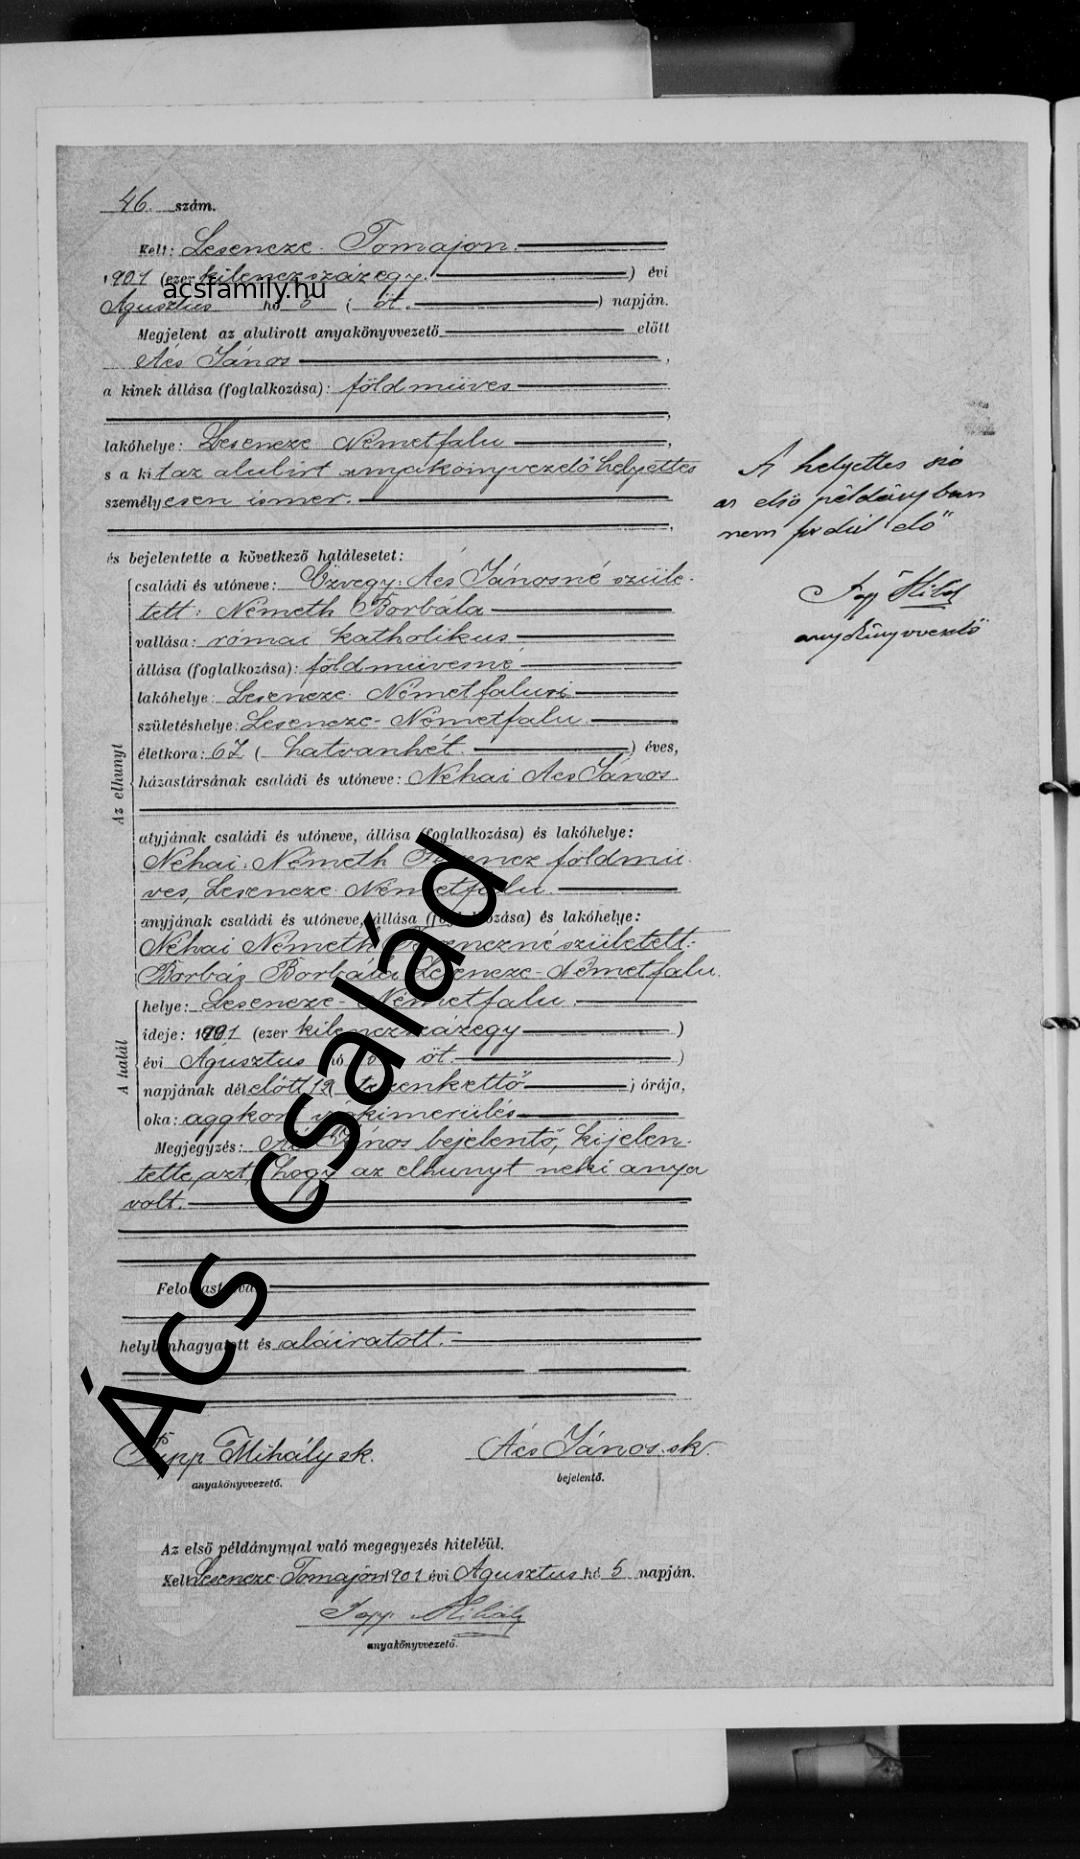 46. szám.
Kelt: Lesencze-Tomajon.
1901 (ezer kilenczszázegy.) évi
acsfamily.hu
Águsztus hó 5 ( öt. ) napján.
Megjelent az alulirott anyakönyvvezető előtt
Ács János ,
a kinek állása (foglalkozása): földmüves
,
lakóhelye: Lesencze Németfalu ,
s a kit az alulirt anyakönyvezető helyettes
személyesen ismer.
,
és bejelentette a következő halálesetet:
Az elhunyt
családi és utóneve: Özvegy: Ács Jánosné szüle-
tett: Németh Borbála
vallása: római katholikus
állása (foglalkozása): földmüvesné
lakóhelye: Lesencze Németfalusi
születéshelye: Lesencze-Németfalu
életkora: 67 ( hatvanhét. ) éves,
házastársának családi és utóneve: Néhai Ács János
atyjának családi és utóneve, állása (foglalkozása) és lakóhelye:
Néhai Németh Ferencz földmü-
ves, Lesencze Németfalu.
anyjának családi és utóneve, állása (foglalkozása) és lakóhelye:
Néhai Németh Ferenczné született:
Borbála Lesencze-Németfalu.
A halál
helye: Lesencze-Németfalu.
ideje: 1901 (ezer kilenczszázegy )
évi Águsztus hó 5 öt. )
napjának délelőtt 12 tizenkettő ) órája,
oka: aggkori végkimerülés
Megjegyzés: Ács János bejelentő, kijelen-
tette, azt, hogy az elhunyt neki anya
volt.
Felolvastatván,
helybenhagyatott és aláiratott.
Papp Mihály sk.
anyakönyvvezető.
Ács János. sk.
bejelentő.
Az első példánynyal való megegyezés hiteléül.
Kelt Lesencze-Tomajon 1901 évi Águsztus hó 5 napján.
Papp Mihály
anyakönyvvezető.
A helyettes szó
az első példányban
nem fordúl elő"
Papp Mihály
anyakönyvvezető
Ács család